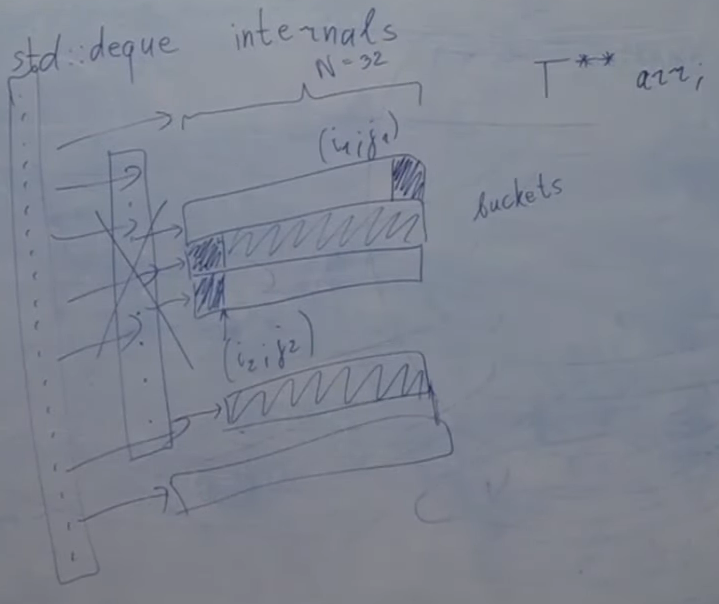 std::deque internals
N=32
T** arr;
(i₁,j₁)
buckets
(i₂,j₂)